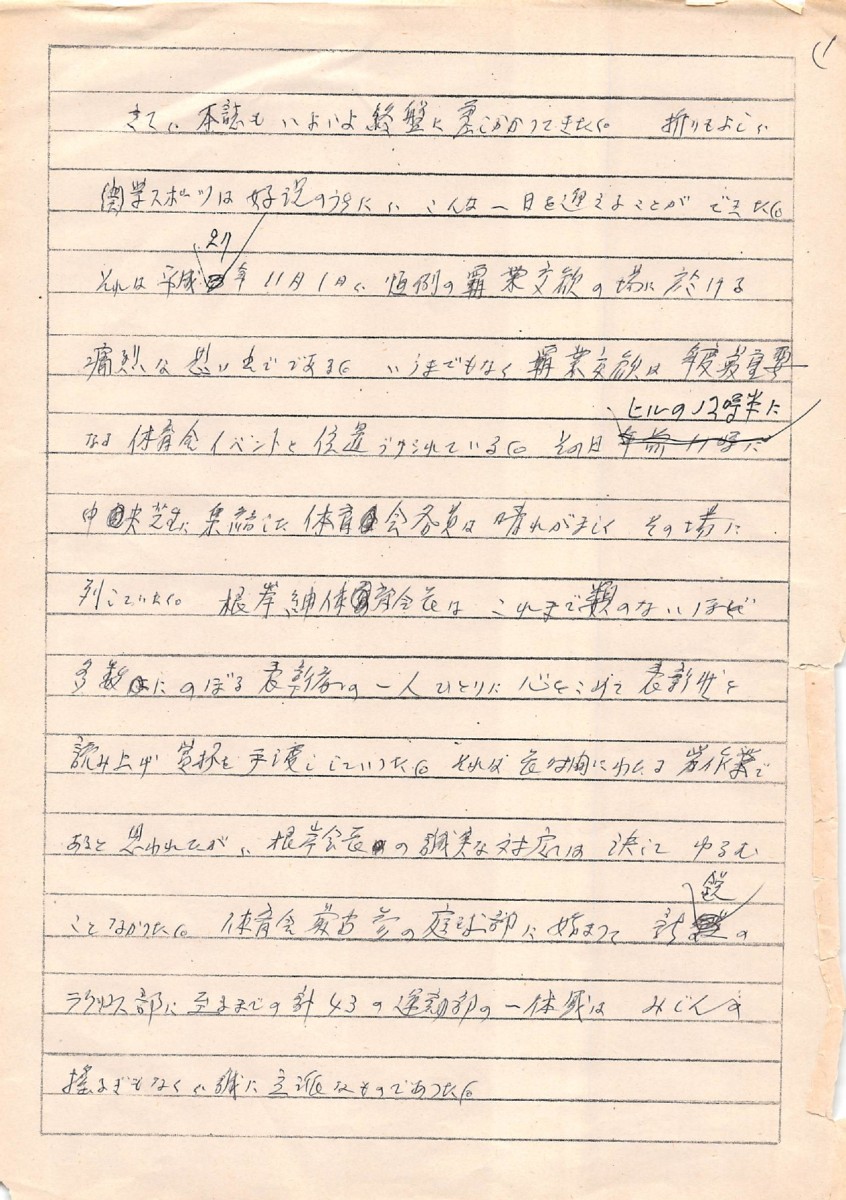 (1
さて、本誌もいよいよ終盤に差しかかってきた。 折りもよし、
関学スポーツは好況のうちに、こんな一日を迎えることができた。
27
それは平成 年11月1日、恒例の覇業交歓の場に於ける
痛烈な思い出である。 いうまでもなく覇業交歓は 年度最重要
ヒルの12時半に
なる体育会イベントと位置づけられている。 その日 午前11時に
中央芝生に集結した体育会各員は晴れがましく その場に
列していた。 根岸紳体育会長は これまで類のないほど
多数にのぼる表彰者の一人ひとりに 心をこめて表彰状を
読み上げ 賞杯を手渡ししていった。 それは長時間にわたる 作業で
あると思われたが、根岸会長の誠実な対応は 決して ゆるむ
ことなかった。 体育会最古参の庭球部に始まって 新鋭の
ラクロス部に至るまでの計43の運動部の一体感は みじんの
揺るぎもなく、誠に立派なものであった。